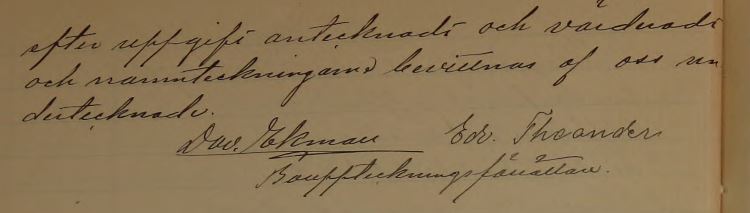 efter uppgift antecknade och värderade
och namnteckningarne bevittnas af oss un
dertecknade.
Dav. Ekman Edv. Theander
Bouppteckningsförrättare.